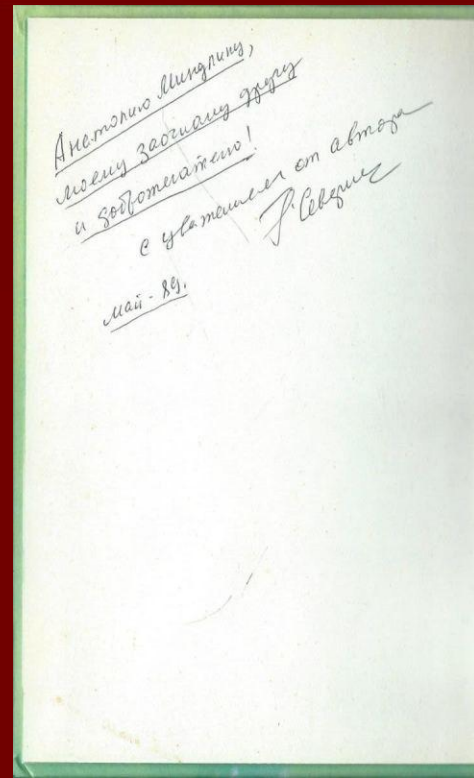 Анатолию Миндлину,
моему заочному другу
и доброжелателю!
с уважением от автора
Г. Северин
май - 89.